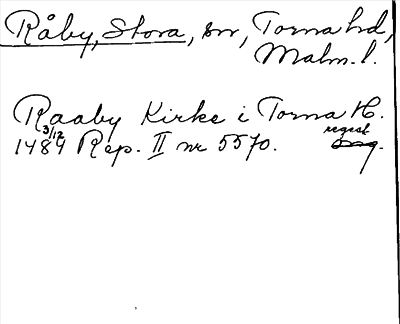 Råby, Stora, sn, Torna hd,
Malm. l.
Raaby Kirke i Torna H.
3/12 regest
1489 Rep. II nr 5570.